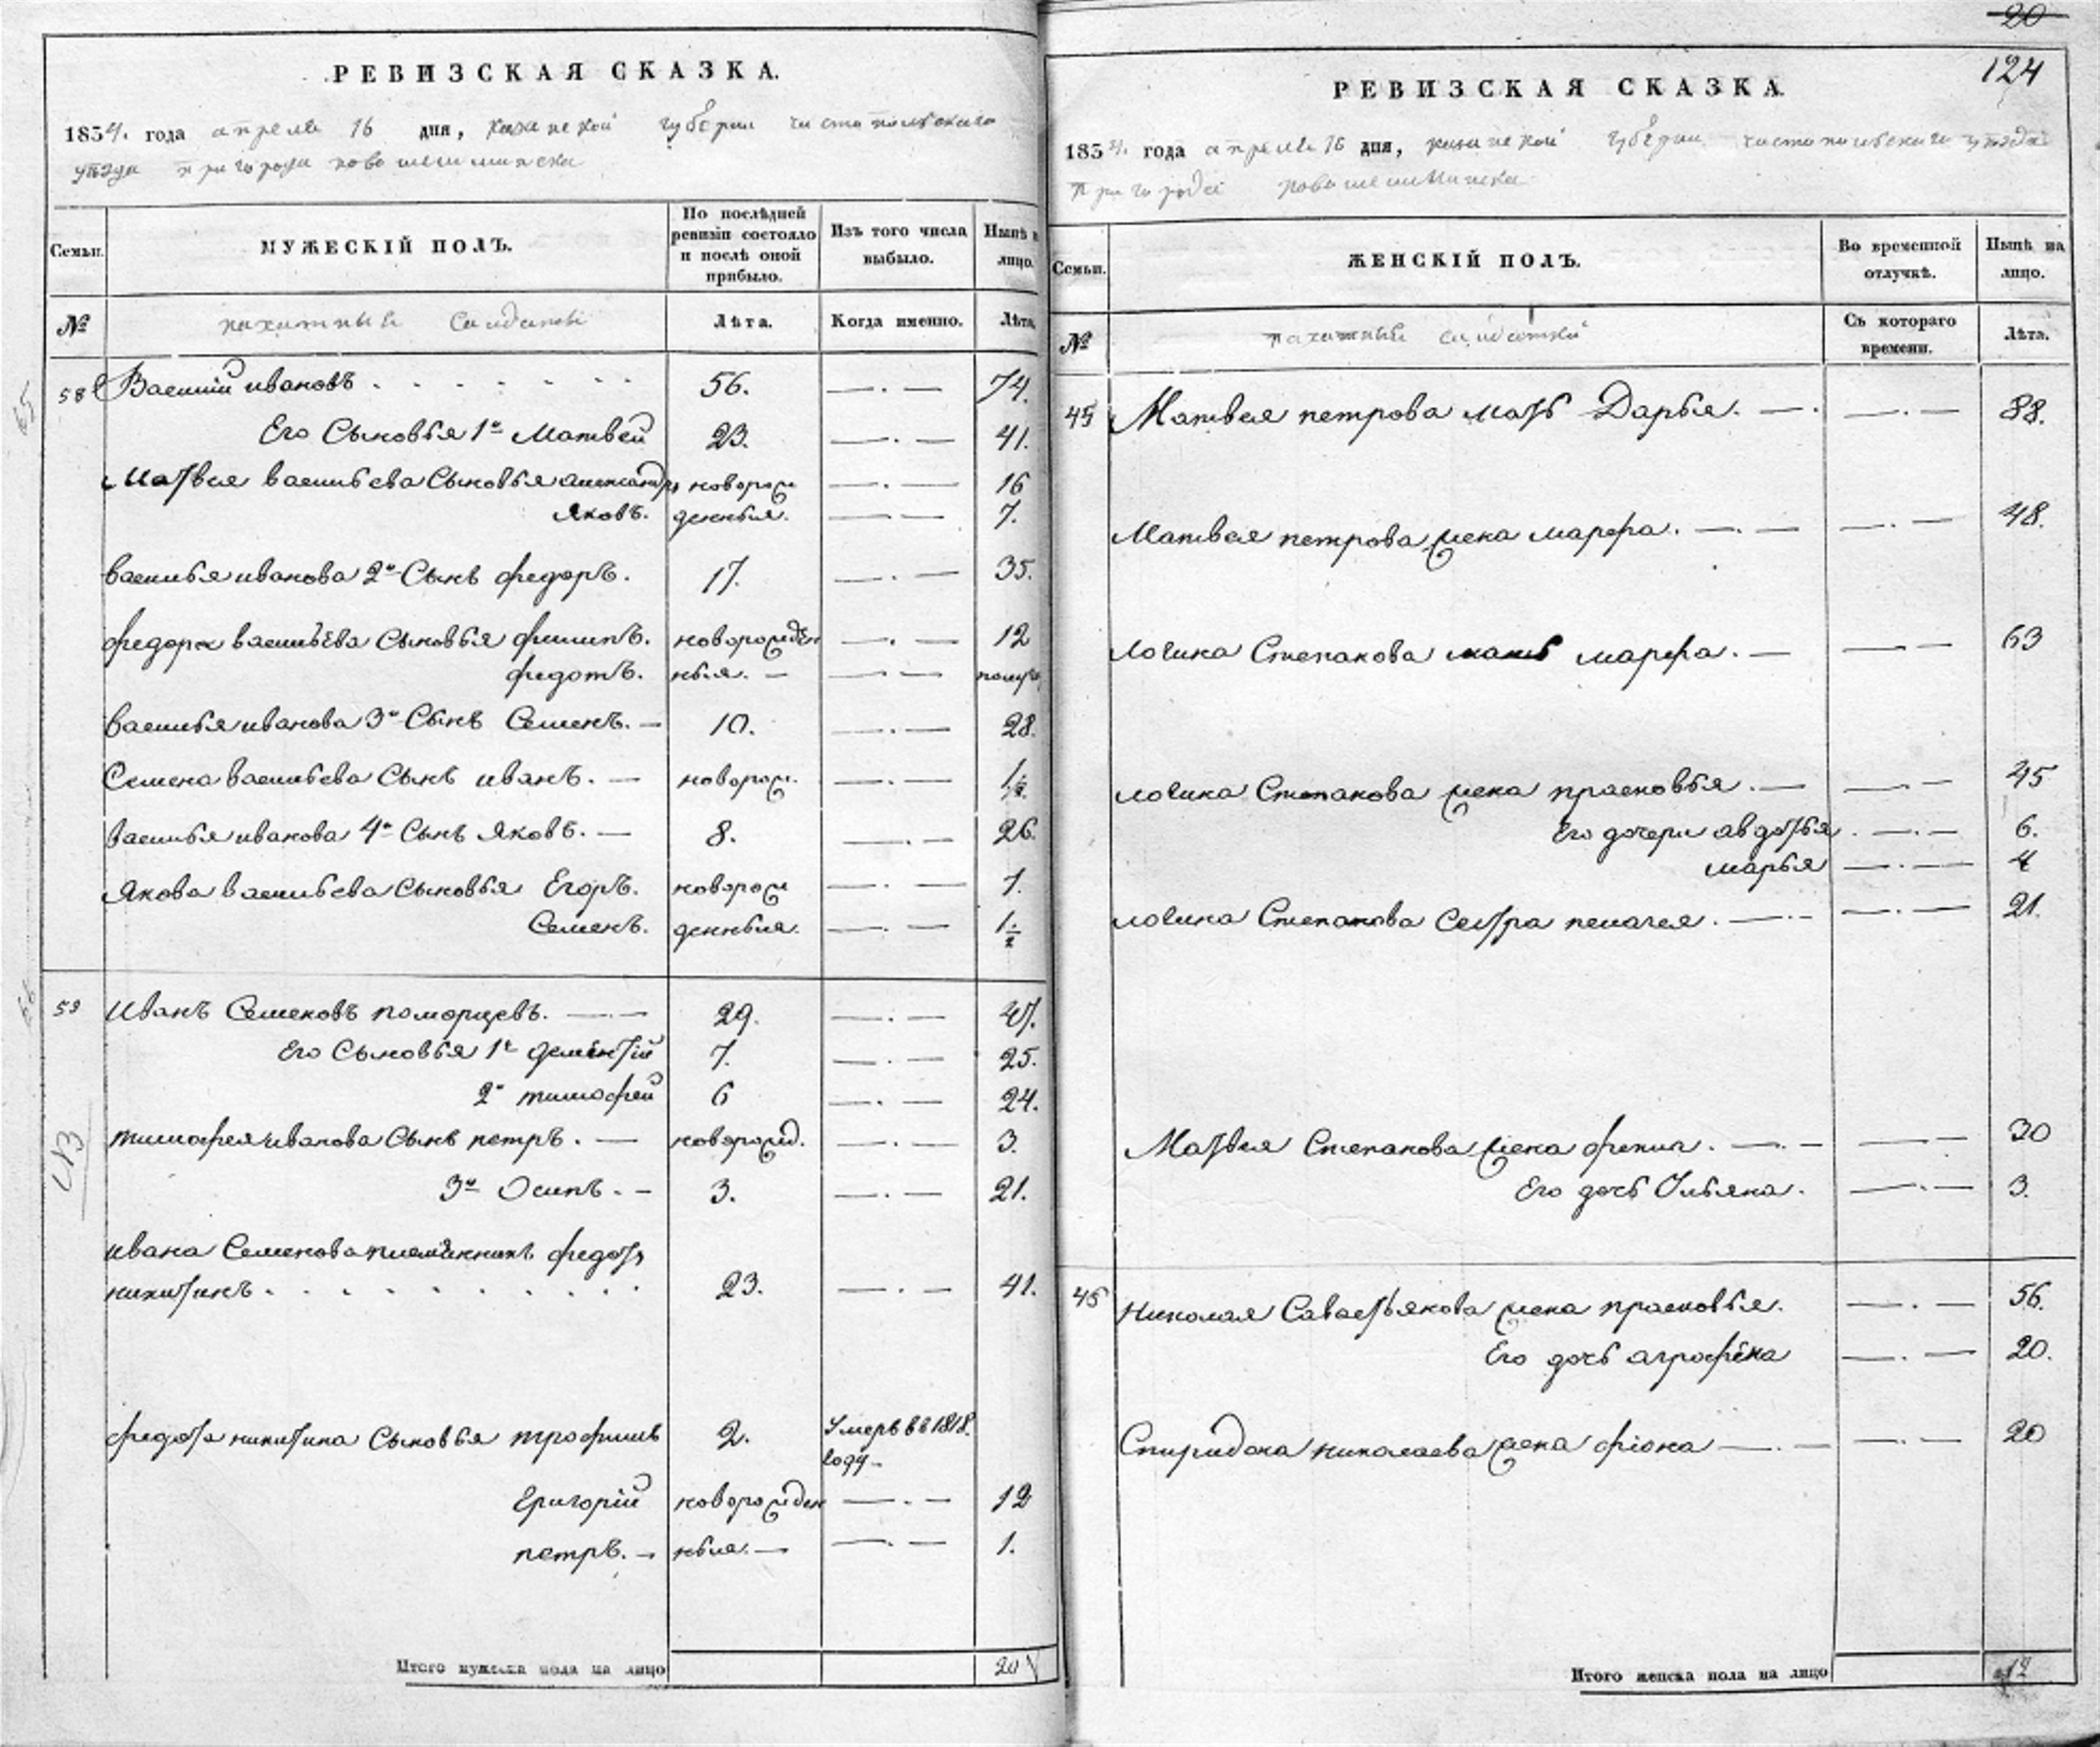 РЕВИЗСКАЯ СКАЗКА.
1834. года апреля 16 дня, казанской губернии чистопольскаго
уѣзда пригорода новошешминска
Семьи.
МУЖЕСКІЙ ПОЛЪ.
По послѣдней ревизіи состояло и послѣ оной прибыло.
Изъ того числа выбыло.
Нынѣ на лицо.
№
пахатныя солдаты
Лѣта.
Когда именно.
Лѣта.
58 Василій ивановъ . . . . . . . 56. —.— 74.
Его Сыновья 1й Матвей 23. —.— 41.
Матвея васильева Сыновья александръ новорож —.— 16
Яковъ. денныя. —.— 7.
василья иванова 2й Сынъ федоръ. 17. —.— 35.
федора васильева Сыновья филипъ. новорожден —.— 12
федотъ. ныя. — —.—
василья иванова 3й Сынъ Семенъ. — 10. —.— 28.
Семена васильева Сынъ иванъ. — новорож. —.—
василья иванова 4й Сынъ Яковъ. — 8. —.— 26.
Якова васильева Сыновья Егоръ. новорож —.—
Семенъ. денныя. —.— 1 1/2
59 Иванъ Семеновъ поморцевъ. —.— 29. —.— 47.
Его Сыновья 1й дементій 7. —.— 25.
2й тимофей 6 —.— 24.
тимофея иванова Сынъ петръ. — новорожд. —.— 3.
3й Осипъ. — 3. —.— 21.
ивана Семенова племянникъ федотъ
никитинъ . . . . . . . . 23. —.— 41.
федота никитина Сыновья трофимъ 2. Умеръ въ 1818.
году —
Григорій новорожден —.— 12
петръ. — ныя. — —.— 1.
Итого мужеска пола на лицо 20
20
124
РЕВИЗСКАЯ СКАЗКА.
1834. года апреля 16 дня, казанской губернии чистопольскаго уѣзда
пригорода новошешминска
Семьи.
ЖЕНСКІЙ ПОЛЪ.
Во временной отлучкѣ.
Нынѣ на лицо.
№
пахатныя солдатки
Съ котораго времени.
Лѣта.
45 Матвея петрова мать Дарья. —. —.— 88.
Матвея петрова жена марфа. —.— —.— 48.
логина Степанова мать марфа. — —.— 63
логина Степанова жена прасковья. — —.— 45
Его дочери авдотья. —.— 6.
марья —.— 4
логина Степанова Сестра пелагея. —.— —.— 21.
Матвея Степанова жена —.— —.— 30
Его дочь Ульяна. —.— 3.
46 Николая Савастьянова жена прасковья. —.— 56.
Его дочь агрофена —.— 20.
Спиридона николаева жена фіона —.— —.— 20
Итого женска пола на лицо 12